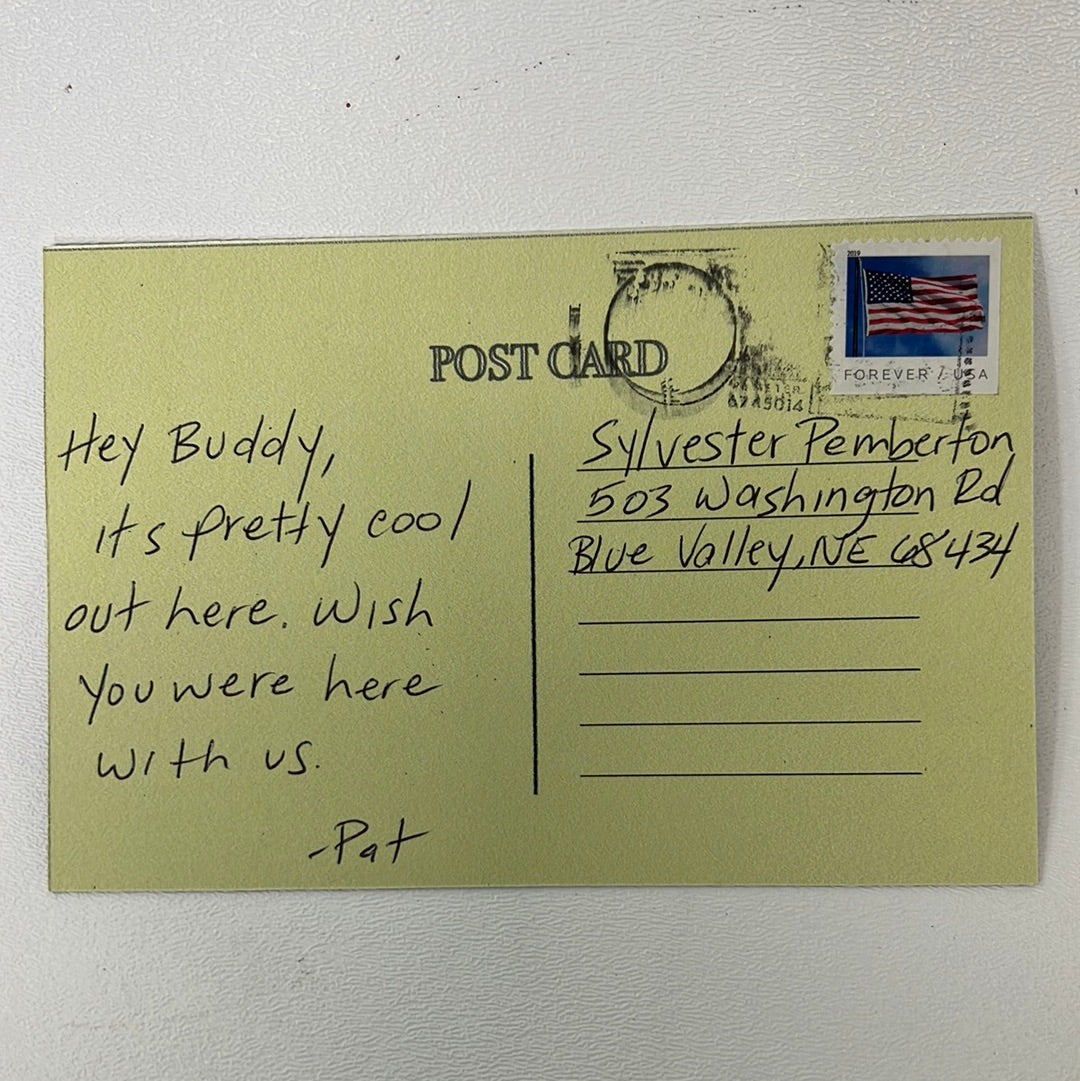 2019
FOREVER / USA
POST CARD
Hey Buddy,
it's pretty cool
out here. Wish
you were here
with us.
-Pat
Sylvester Pemberton
503 Washington Rd
Blue Valley, NE 68434